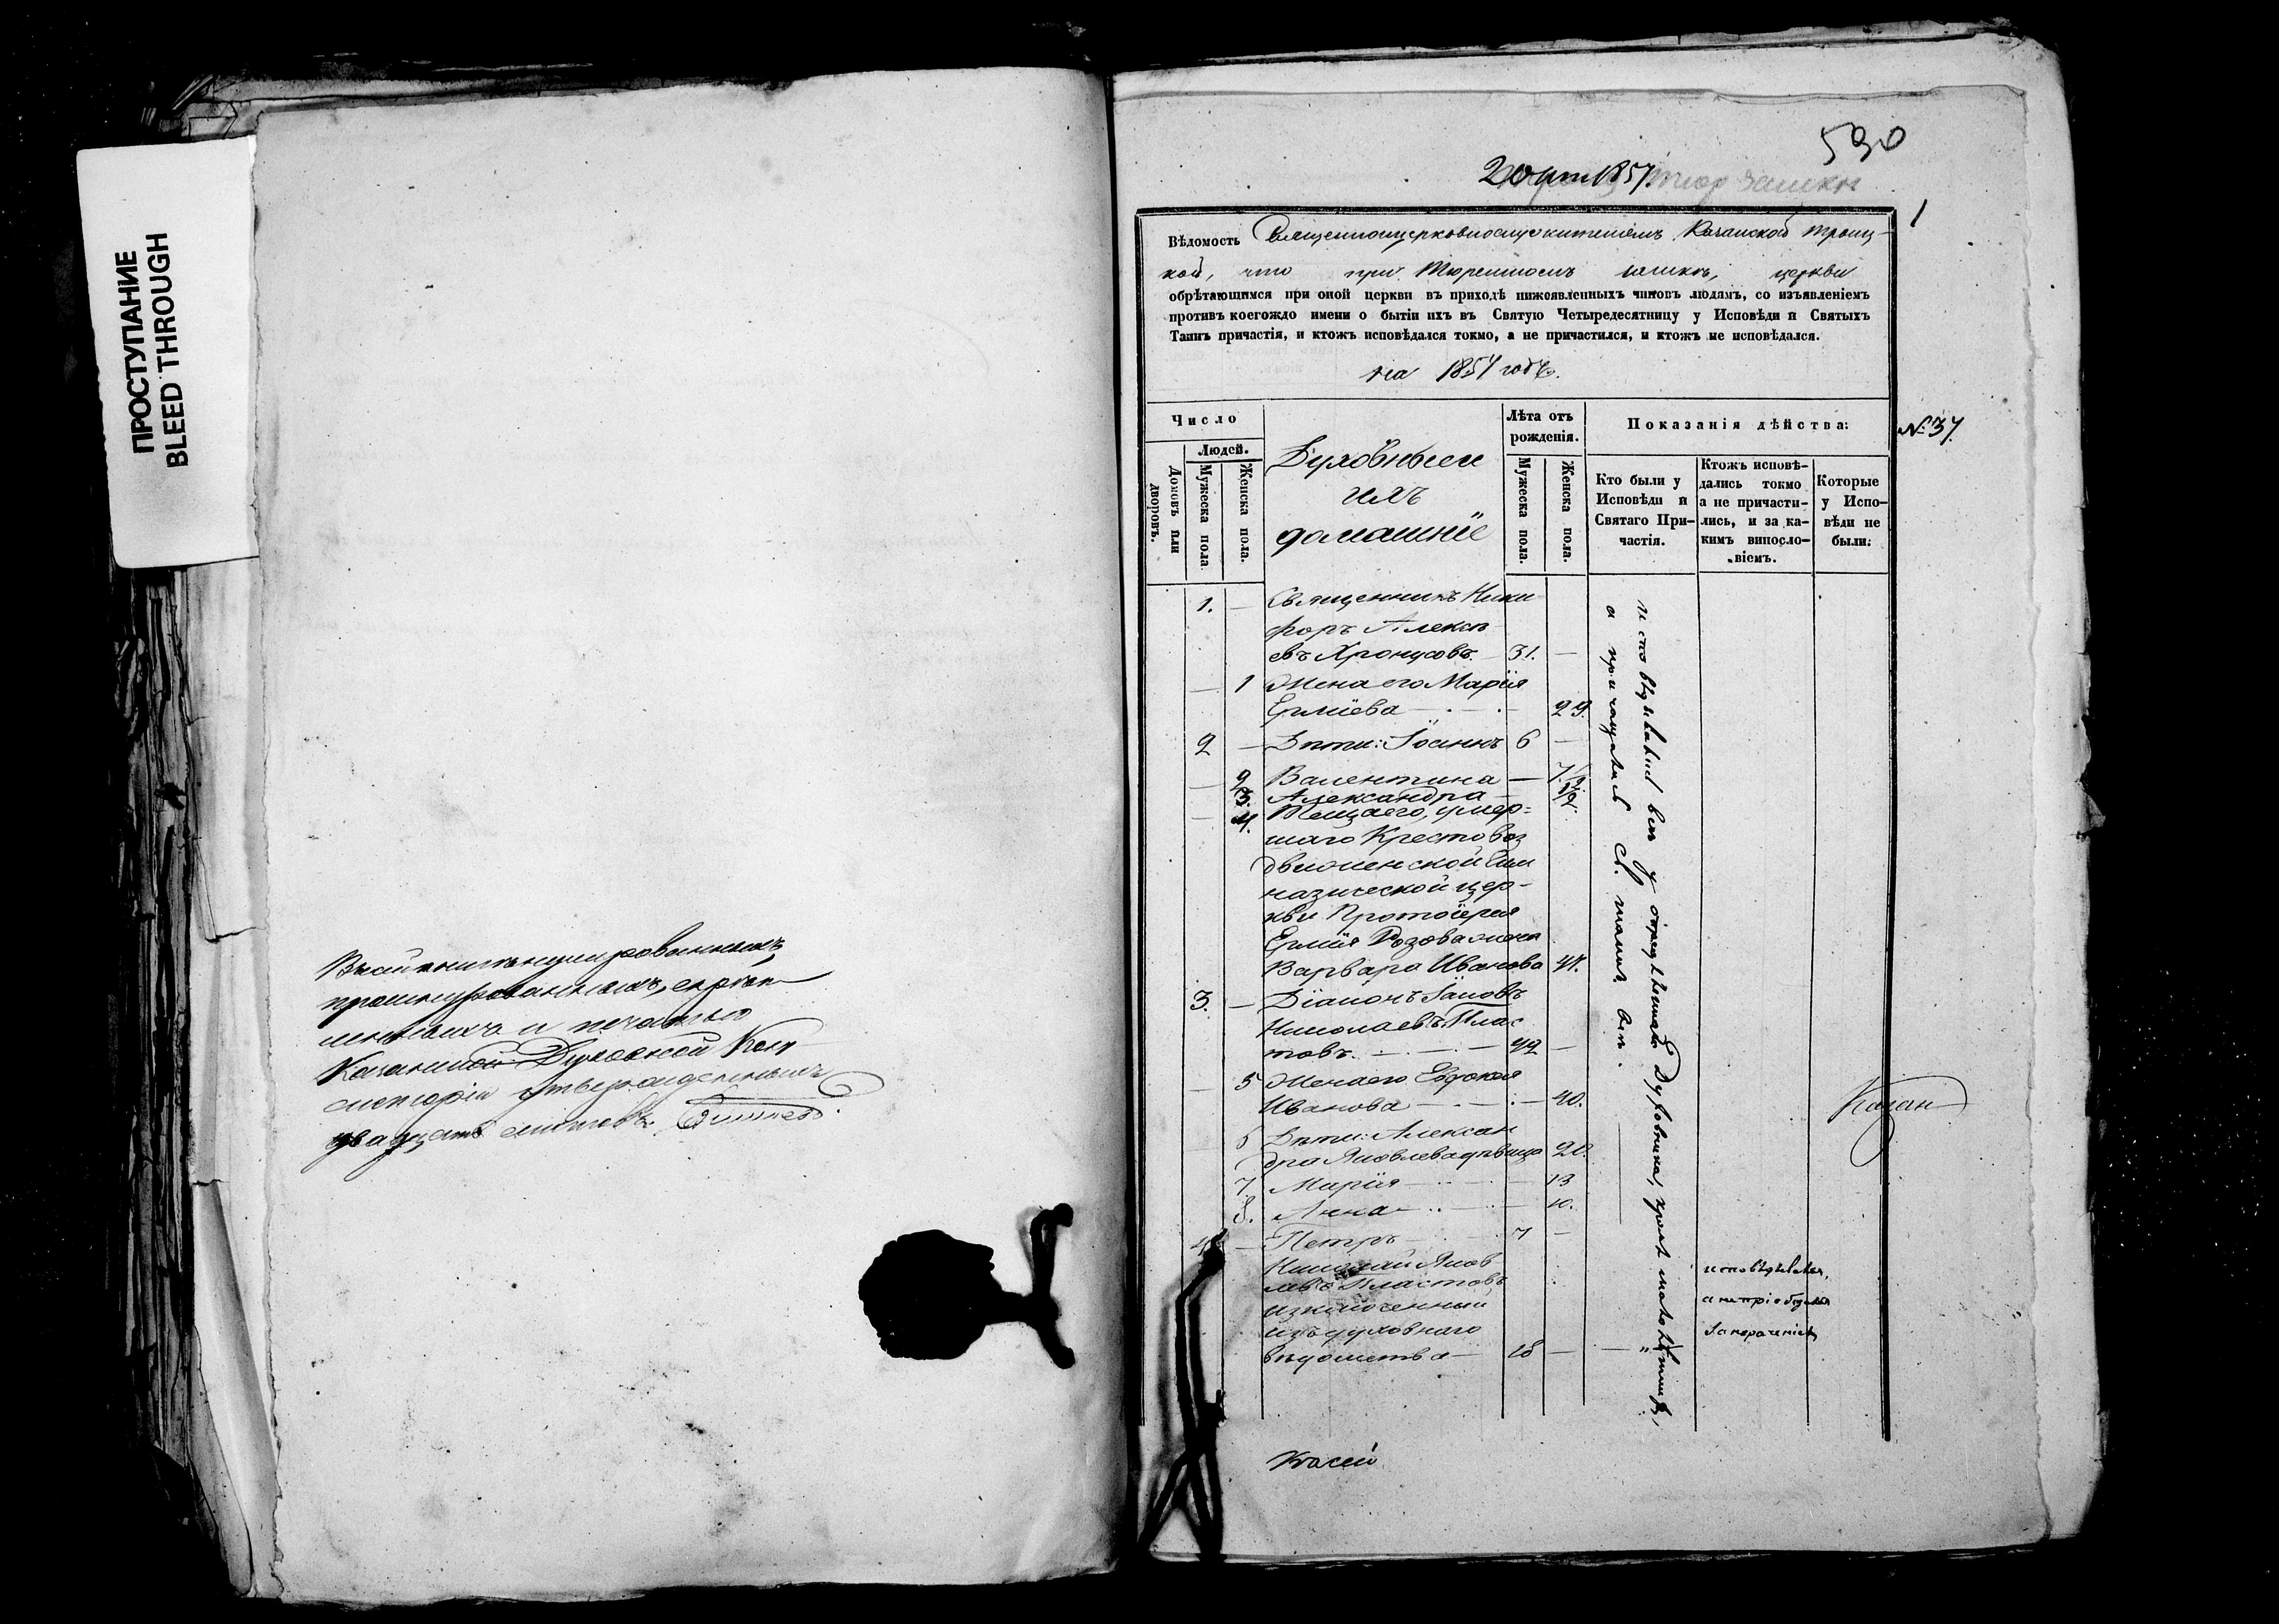 ПРОСТУПАНИЕ
BLEED THROUGH
прошнурованныхъ, скрѣп
ленныхъ и печатью
Казанской Духовной Кон
систоріи утвержденныхъ
двадцать листовъ.
590
1857.
1
Вѣдомость Священноцерковнослужителямъ Казанской Троиц-
кой, что при Тюремномъ замкѣ, церкви
обрѣтающимся при оной церкви въ приходѣ нижеявленныхъ чиновъ людямъ, со изъявленіемъ
противъ коегождо имени о бытіи ихъ въ Святую Четыредесятницу у Исповѣди и Святыхъ
Таинъ причастія, и ктожъ исповѣдался токмо, а не причастился, и ктожъ не исповѣдался.
на 1857 годъ.
№ 37.
Число
Людей.
Домовъ или дворовъ.
Мужеска пола
Женска пола.
Духовные и
ихъ
домашніе
Лѣта отъ
рожденія.
Мужеска пола.
Женска пола.
Показанія дѣйства:
Кто были у
Исповѣди и
Святаго При-
частія.
Ктожъ исповѣ-
дались токмо
а не причасти-
лись, и за ка-
кимъ виносло-
віемъ.
Которые
у Испо-
вѣди не
были.
1. — Священникъ Ники
форъ Алексѣ
евъ Хрусовъ. 31. —
— 1 Жена его Марія
Ерміева — 29.
2 — Дѣти: Іоаннъ 6 —
— 2 Валентина —
3. Александра —
— 4. Теща его, умер-
шаго Крестовоз
движенской Гим
назической цер-
кви Протоіерея
Ермія Розова жена
Варвара Иванова 47.
3. — Діаконъ Іаковъ
Николаевъ Плас
товъ. — 42 —
— 5 Жена его Евдокія
Иванова — 40.
6 Дѣти: Алексан
дра Яковлева дѣвица 20.
7 Марія — 13
8. Анна — 10.
4 — Петръ — 7 —
Николай Яков
левъ Пластовъ
исключенный
изъ духовнаго
вѣдомства — 18 — — „
исповѣдывались всѣ у опредѣленнаго Духовника, кромѣ малолѣтнихъ,
а причащались св. таинъ всѣ.
исповѣдывался,
а не пріобщался
Казан